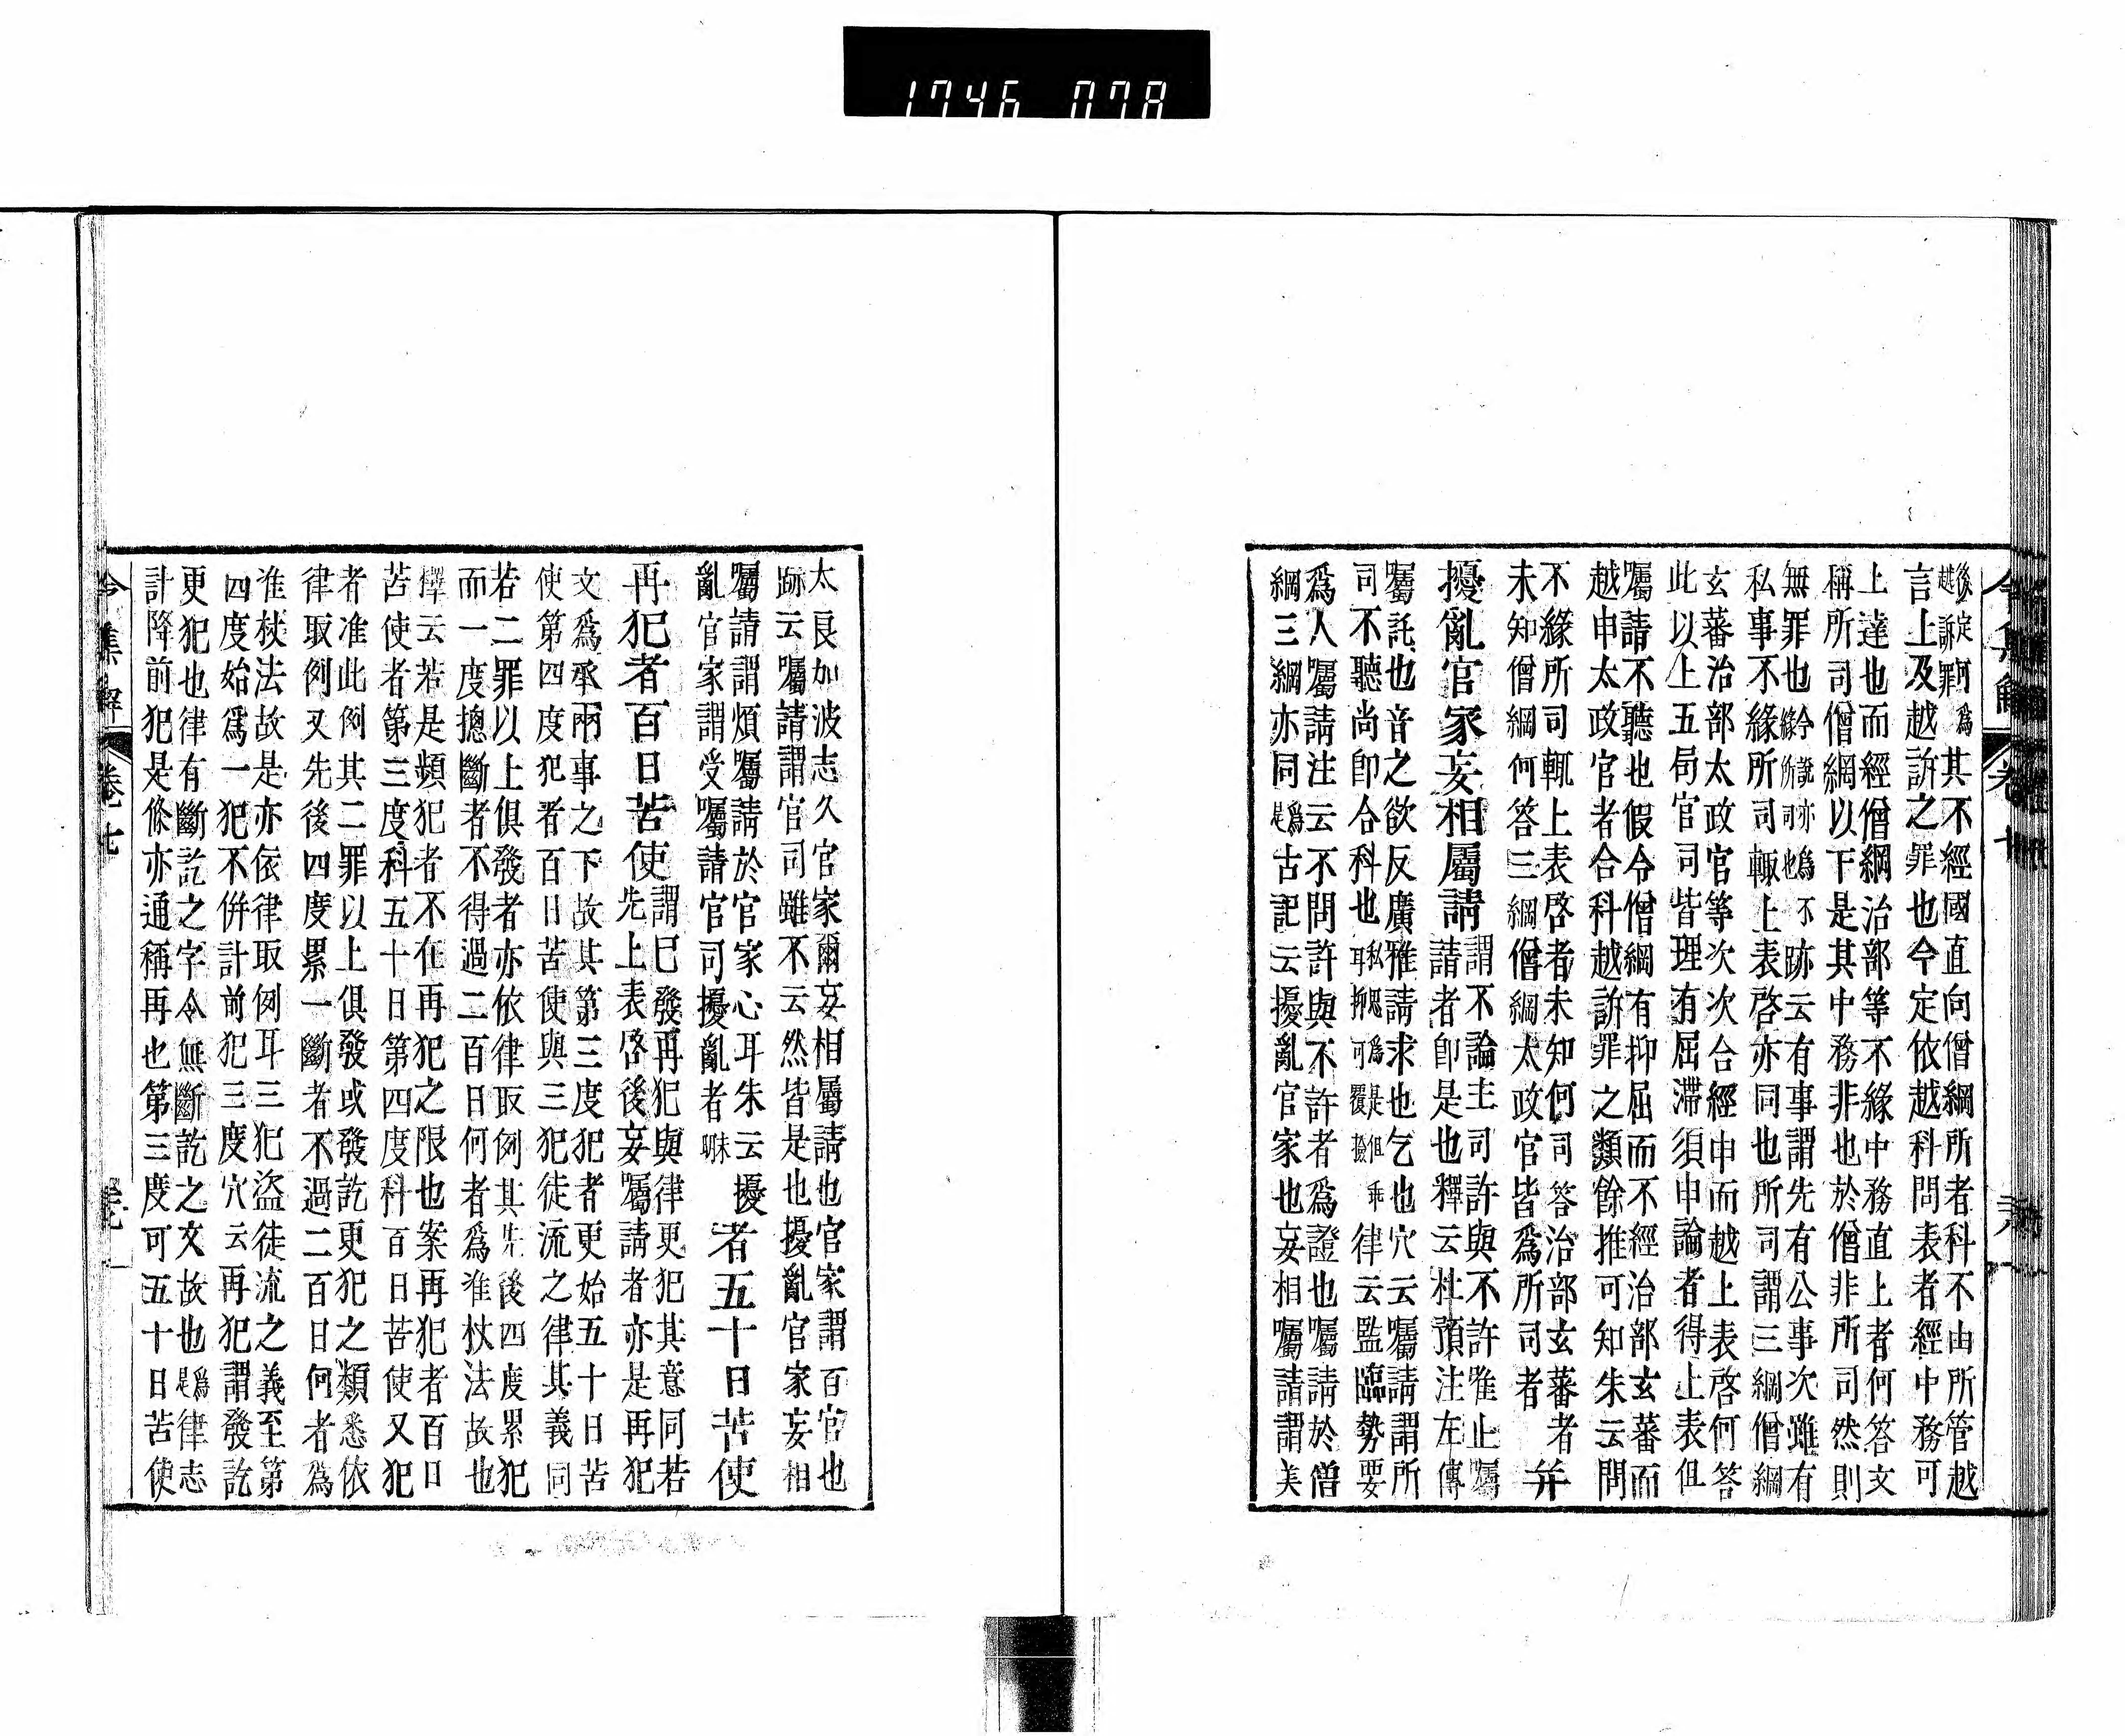 1746 078
後定何爲其不經國直向僧綱所者科不由所管越
越訴罪言上及越訴之罪也今定依越科問表者經中務可
上達也而經僧綱治部等不緣中務直上者何答文
稱所司僧綱以下是其中務非也於僧非所司然則
無罪也今說亦爲不跡云有事謂先有公事次雖有
緣所司也
私事不緣所司輙上表啓亦同也所司謂三綱僧綱
玄蕃治部太政官等次次合經申而越上表啓何答
此以上五局官司皆理有屈滯須申論者得上表但
屬請不聽也假令僧綱有抑屈而不經治部玄蕃而
越申太政官者合科越訴罪之類餘推可知朱云問
不緣所司輙上表啓者未知何司答治部玄蕃者
未知僧綱何答三綱僧綱太政官皆爲所司者
并
擾亂官家妄相屬請
謂不論主司許與不許唯止囑
請者卽是也釋云杜預注左傳
囑託也音之欲反廣雅請求也乞也穴云囑請謂所
司不聽尚卽合科也
律云監臨勢要
爲人囑請注云不問許與不許者爲證也囑請於僧
綱三綱亦同爲是古記云擾亂官家也妄相囑請謂美
令集解 卷七
太良加波志久官家爾妄相屬請也官家謂百官也
跡云囑請謂官司雖不云然皆是也擾亂官家妄相
囑請謂煩囑請於官家心耳朱云擾
亂官家謂受囑請官司擾亂者
者五十日苦使
再犯者百日苦使
謂已發再犯與律更犯其意同若
先上表啓後妄囑請者亦是再犯
文爲承兩事之下故其第三度犯者更始五十日苦
使第四度犯者百日苦使與三犯徒流之律其義同
若二罪以上俱發者亦依律取例其先後四度累犯
而一度摠斷者不得過二百日何者爲准杖法故也
釋云若是頻犯者不在再犯之限也案再犯者百日
苦使者第三度科五十日第四度科百日苦使又犯
者准此例其二罪以上俱發或發訖更犯之類悉依
律取例又先後四度累一斷者不過二百日何者爲
准杖法故是亦依律取例耳三犯盜徒流之義至第
四度始爲一犯不併計前犯三度穴云再犯謂發訖
更犯也律有斷訖之字令無斷訖之文故也爲是律志
計降前犯是條亦通稱再也第三度可五十日苦使
令集解 卷七